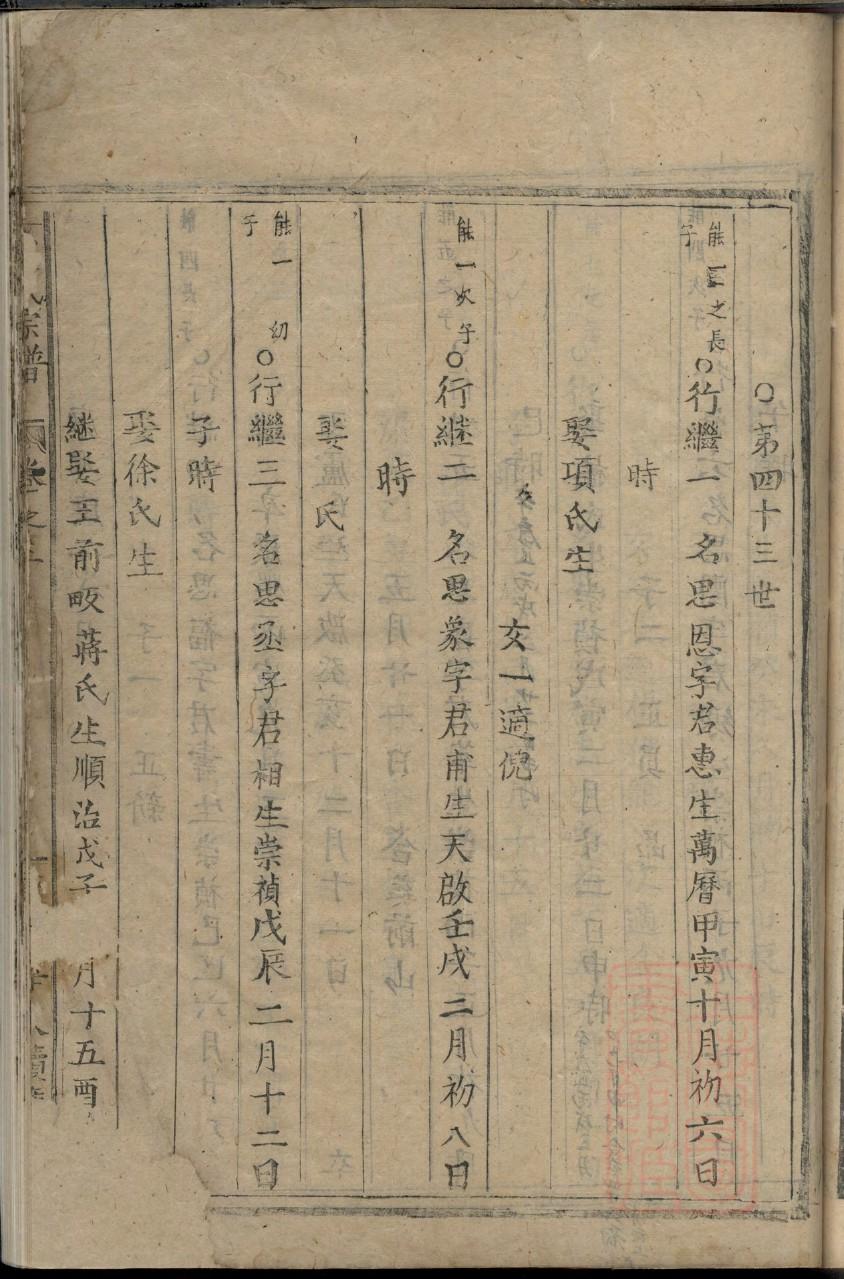 ○第四十三世
能一之長子○行繼一 名思恩字君惠生萬曆甲寅十月初六日
時
娶項氏生
女一適倪
能一次子○行継二 名思象字君甫生天啟壬戌二月初八日
時
娶 氏
能一 幼子○行繼三 名思丞字君相生崇禎戊辰二月十二日
子時
娶徐氏生
継娶王前畈蔣氏生順治戊子 月十五酉
氏宗譜 卷之